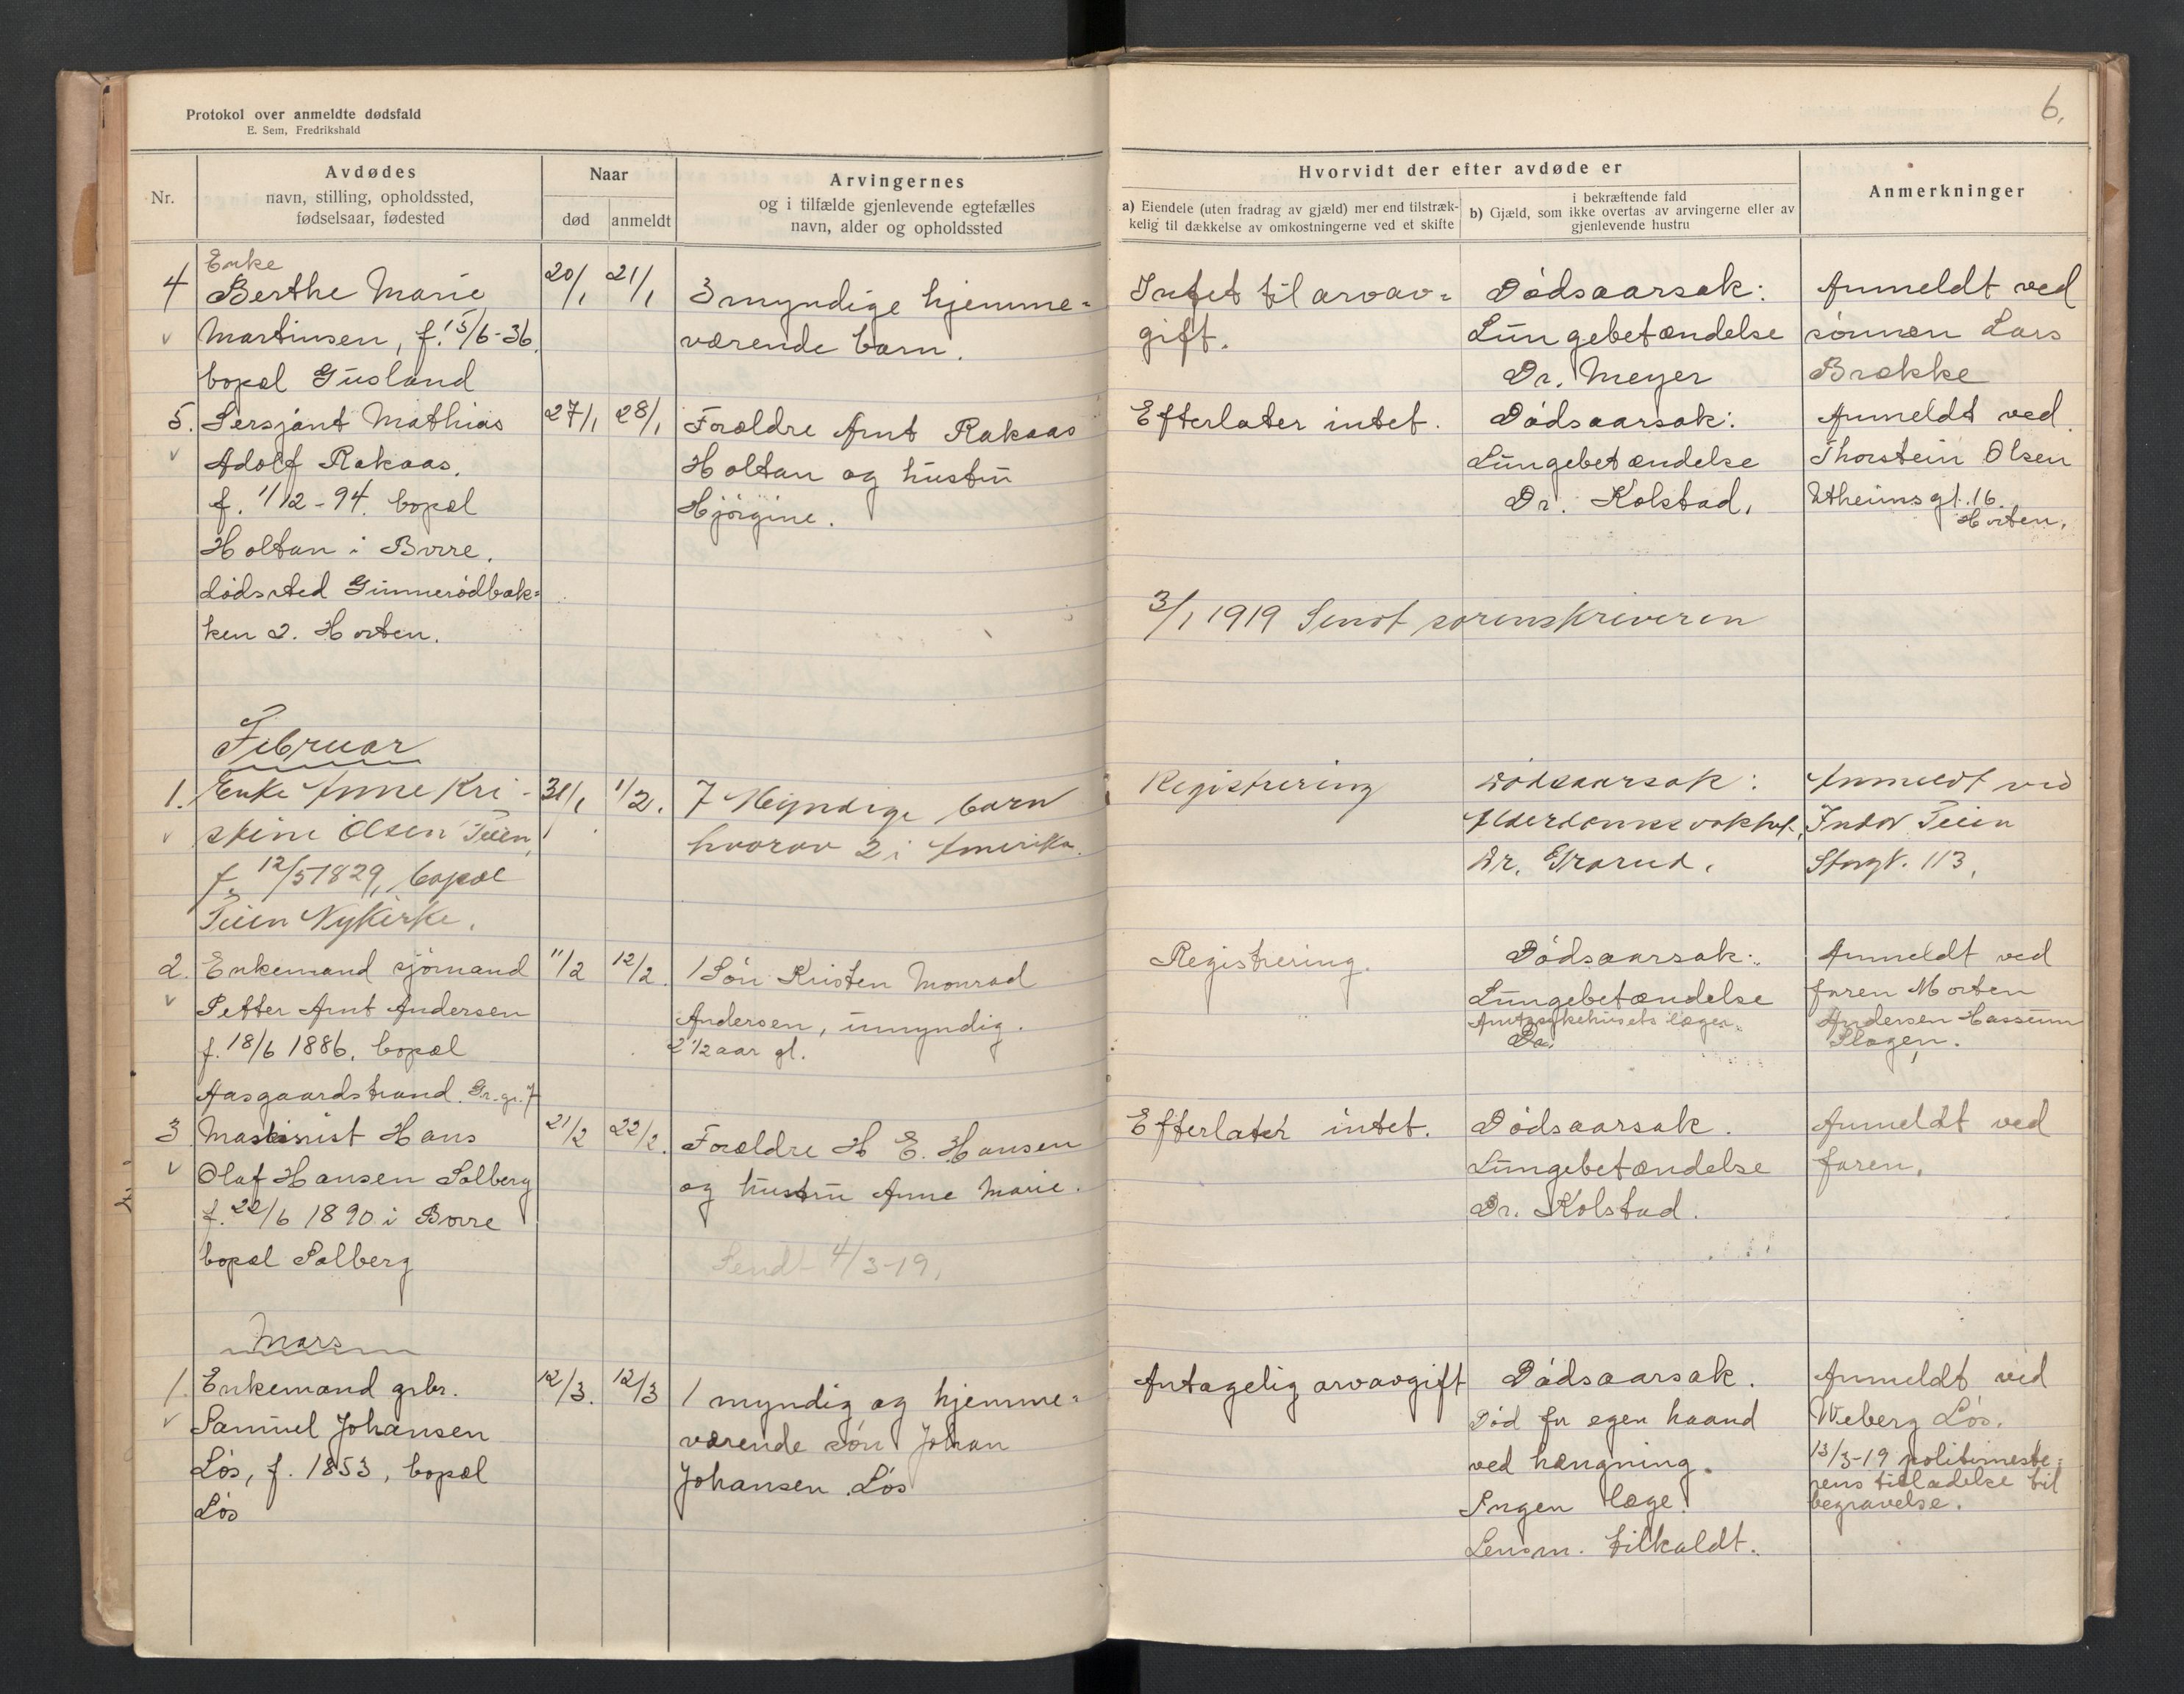 Protokol over anmeldte dødsfald
E. Sem, Fredrikshald
Nr.
Avdødes
navn, stilling, opholdssted,
fødselsaar, fødested
Naar
død
anmeldt
Arvingernes
og i tilfælde gjenlevende egtefælles
navn, alder og opholdssted
4
Enke
Berthe Marie
Martinsen, f. 15/6-36.
bopæl Gusland
20/1
21/1
3 myndige hjemme=
værende barn.
5.
Sersjant Mathias
Adolf Rakaas.
f. 1/12-94. bopæl
Holtan i Borre.
dødssted Gunnerødbak=
ken 2. Horten.
27/1
28/1
Forældre Arnt Rakaas
Holtan og hustru
Hjørgine.
Februar
1.
Enke Anne Kri-
stine Olsen Teien,
f. 12/5 1829, bopæl
Teien Nykirke.
31/1
1/2.
7 Myndige barn
hvorav 2 i Amerika.
2.
Enkemand sjømand
Petter Arnt Andersen
f. 18/6 1886. bopæl
Aasgaardstrand. Gr. gr. 7
11/2
12/2.
1 Søn Kristen Monrad
Andersen, umyndig.
2 1/2 aar gl.
3
Maskinist Hans
Olaf Hansen Solberg
f. 22/6 1890 i Borre
bopæl Solberg
21/2
22/2.
Forældre H E. Hansen
og hustru Anne Marie.
Sendt 4/3-19.
Mars
1.
Enkemand grbr.
Samuel Johansen
Løs, f. 1853, bopæl
Løs
12/3.
12/3
1 myndig og hjemme=
værende søn Johan
Johansen Løs
6.
Hvorvidt der efter avdøde er
a) Eiendele (uten fradrag av gjæld) mer end tilstræk-
kelig til dækkelse av omkostningerne ved et skifte
i bekræftende fald
b) Gjæld, som ikke overtas av arvingerne eller av
gjenlevende hustru
Anmerkninger
Intet til arvav=
gift.
Dødsaarsak:
Lungebetændelse
Dr. Meyer
Anmeldt ved
sønnen Lars
Brække
Efterlater intet.
Dødsaarsak:
Lungebetændelse
Dr. Kolstad.
Anmeldt ved
Thorstein Olsen
gt. 16
Horten.
3/1 1919 Sendt sorenskriveren
Registrering
Dødsaarsak:
Dr.
Anmeldt ved
Teien
Storgt. 113.
Registrering.
Dødsaarsak:
Lungebetændelse
Amtssykehusets læger.
Anmeldt ved
faren Morten
Andersen Hassum
Slagen.
Efterlater intet.
Dødsaarsak.
Lungebetændelse
Dr. Kolstad.
Anmeldt ved
faren.
Antagelig arvavgift
Dødsaarsak.
Død for egen haand
ved hængning.
Ingen læge.
Lensm. tilkaldt.
Anmeldt ved
Weberg Løs.
13/3-19 politimeste=
rens tilladelse til
begravelse.